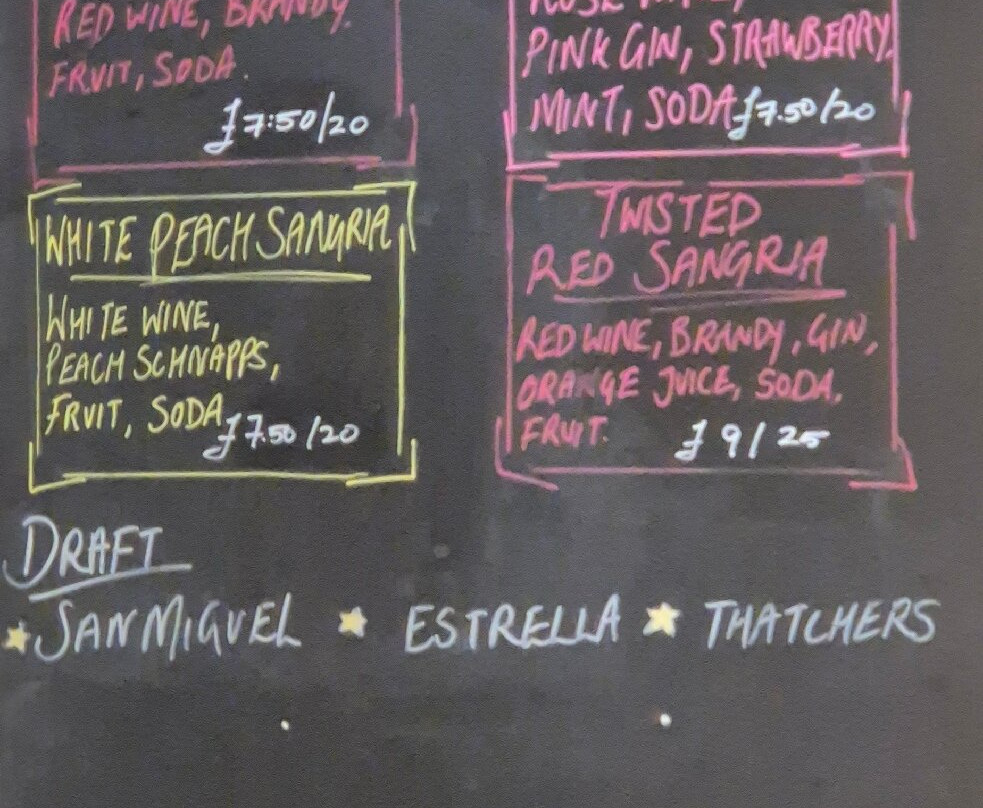 RED WINE, BRANDY.
FRUIT, SODA.
£7:50/20
PINK GIN, STRAWBERRY,
MINT, SODA £7.50/20
WHITE PEACH SANGRIA
WHITE WINE,
PEACH SCHNAPPS,
FRUIT, SODA £7.50/20
TWISTED
RED SANGRIA
RED WINE, BRANDY, GIN,
ORANGE JUICE, SODA.
FRUIT. £9/25
DRAFT
SAN MIGUEL ESTRELLA THATCHERS